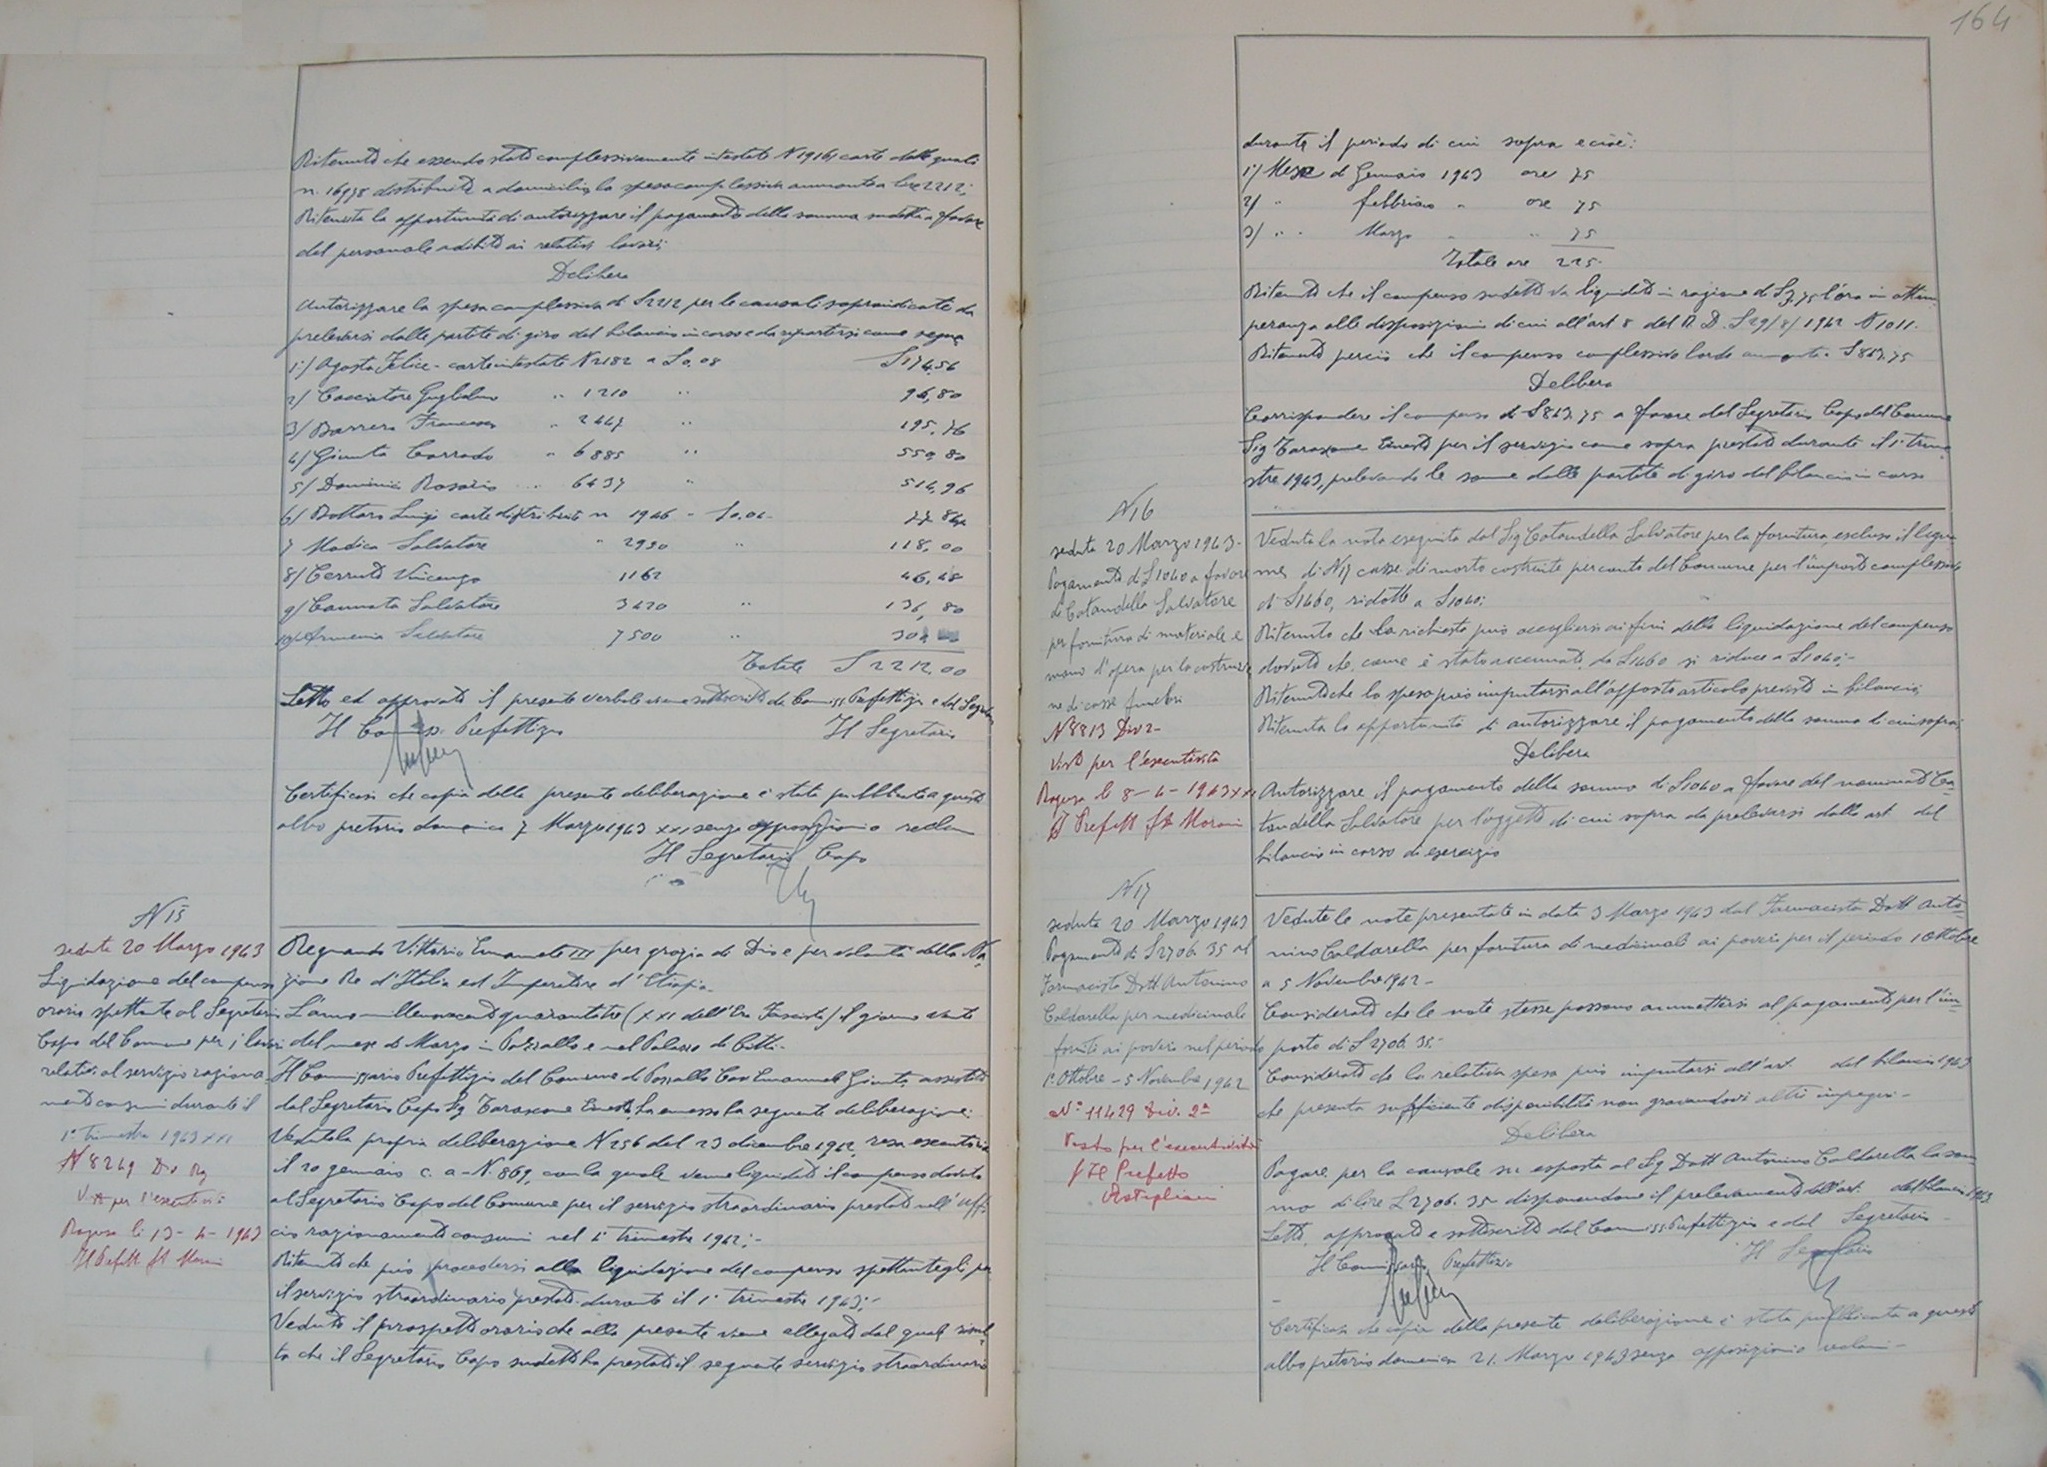 Ritenuto che essendo state complessivamente intestate N 19161 carte delle quali
n. 16978 distribuite a domicilio, la spesa complessiva ammonta a lire 2212;
Ritenuta la opportunità di autorizzare il pagamento della somma sudetta a favore
del personale adibito ai relativi lavori;
Delibera
Autorizzare la spesa complessiva di £ 2212 per le causali sopraindicate da
prelevarsi dalle partite di giro del bilancio in corso e da ripartirsi come segue
1:/ Agosta Felice - carte intestate N 2182 a £ 0.08 £ 174.56
2/ Cacciatore Guglielmo " 1210 " 96,80
3/ Barrera Francesco " 2447 " 195.76
4/ Giunta Corrado " 6885 " 550,80
5/ Dominici Rosario " 6437 " 514,96
6/ Bottaro Luigi carte distribuite n 1946 - £ 0.04 77.84
7 Modica Salvatore " 2950 " 118,00
8/ Cerruto Vincenzo 1162 46,48
9/ Cannata Salvatore 3420 " 136,80
10/ Armenia Salvatore 7500 " 300
Totale £ 2212,00
Letto ed approvato il presente verbale viene sottoscritto da Commiss Prefettizio e dal Segretario
Il Commiss. Prefettizio Il Segretario
Certificasi che copia della presente deliberazione è stata pubblicata a questo
albo pretorio domenica 7 Marzo 1943 XXI senza opposizioni o reclami
Il Segretario Capo
N 15
seduta 20 Marzo 1943
Liquidazione del compenso
orario spettante al Segretario
Capo del Comune per i lavori
relativi al servizio raziona
mento consumi durante il
1° trimestre 1943 XXI
N 8249 Div Rg
Visto per l'esecutività
Ragusa li 13-4-1943
Il Prefetto ft Marani
Regnando Vittorio Emanuele III per grazia di Dio e per volontà della Na-
zione Re d'Italia ed Imperatore d'Etiopia
L'anno millenovecentoquarantatre (XXI dell'Era Fascista) il giorno venti
del mese di Marzo in Pozzallo e nel Palazzo di Città-
Il Commissario Prefettizio del Comune di Pozzallo Cav Emanuele Giunta, assistito
dal Segretario Capo Sig Tarascone Ernesto ha emesso la seguente deliberazione:
Veduta la propria deliberazione N 256 del 23 dicembre 1942, resa esecutoria
il 20 gennaio c.a - N. 869, con la quale venne liquidato il compenso dovuto
al Segretario Capo del Comune per il servizio straordinario prestato nell'uffi-
cio razionamento consumi nel 4° trimestre 1942;-
Ritenuto che può procedersi alla liquidazione del compenso spettantegli per
il servizio straordinario prestato durante il 1° trimestre 1943;-
Veduto il prospetto orario che alla presente viene allegato dal quale risul-
ta che il Segretario Capo sudetto ha prestato il seguente servizio straordinario
164
durante il periodo di cui sopra e cioè:
1/ Mese di Gennaio 1943 ore 75
2/ " febbraio " ore 75
3/ " Marzo " " 75
Totale ore 225
Ritenuto che il compenso sudetto va liquidato in ragione di £ 3,75 l'ora in ottem-
peranza alle disposizioni di cui all'art 8 del R.D.L 29/8/1942 N 1011.
Ritenuto perciò che il compenso complessivo lordo ammonta a £ 843.75
Delibera
Corrispondere il compenso di £ 843.75 a favore del Segretario Capo del Comune
Sig Tarascone Ernesto per il servizio come sopra prestato durante il 1° trime-
stre 1943, prelevando le somme dalle partite di giro del bilancio in corso
N 16
seduta 20 Marzo 1943-
Pagamento di £ 1040 a favore
di Catandella Salvatore
per fornitura di materiale e
mano d'opera per la costruzio
ne di casse funebri
N 8813 Div 2-
Visto per l'esecutività
Ragusa li 8-4-1943 XXI
Il Prefetto ft Marani
Veduta la nota eseguita dal Sig Catandella Salvatore per la fornitura, escluso il legna-
me, di N 17 casse di morto costruite per conto del Comune per l'importo complessivo
di £ 1460, ridotto a £ 1040;
Ritenuto che la richiesta può accogliersi ai fini della liquidazione del compenso
dovuto che, come è stato accennato, da £ 1460 si riduce a £ 1040;-
Ritenuto che la spesa può imputarsi all'apposito articolo previsto in bilancio;
Ritenuta la opportunità di autorizzare il pagamento della somma di cui sopra;
Delibera
Autorizzare il pagamento della somma di £ 1040 a favore del nominato Ca-
tandella Salvatore per l'oggetto di cui sopra da prelevarsi dallo art. del
bilancio in corso di esercizio
N 17
seduta 20 Marzo 1943
Pagamento di £ 2706.35 al
Farmacista Dott Antonino
Caldarella per medicinale
fornito ai poveri nel periodo
1° Ottobre - 5 Novembre 1942
N° 11429 Div. 2ª
Visto per l'esecutività
p Il Prefetto
Vedute le note presentate in data 3 Marzo 1943 dal Farmacista Dott Anto-
nino Caldarella per fornitura di medicinali ai poveri per il periodo 1 Ottobre
a 5 Novembre 1942-
Considerato che le note stesse possono ammettersi al pagamento per l'im-
porto di £ 2706.35;-
Considerato che la relativa spesa può imputarsi all'art. del bilancio 1943
che presenta sufficiente disponibilità non gravandovi altri impegni-
Delibera
Pagare per la causale su esposta al Sig Dott Antonino Caldarella la som-
ma di lire £ 2706.35 disponendone il prelevamento dall'art. del bilancio 1943
Letto, approvato e sottoscritto dal Commiss Prefettizio e dal Segretario-
Il Commissario Prefettizio Il Segretario
Certificasi che copia della presente deliberazione è stata pubblicata a questo
albo pretorio domenica 21. Marzo 1943 senza opposizioni o reclami-